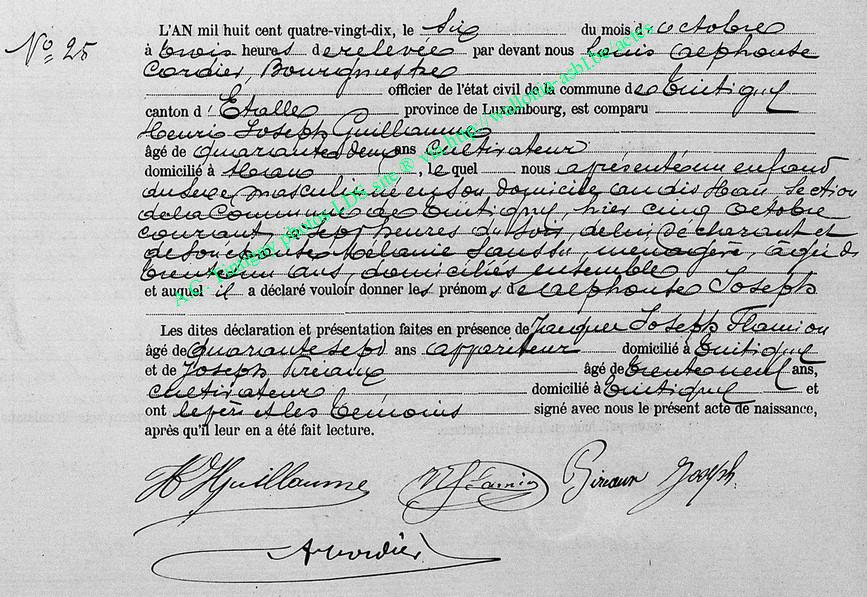 N° 25
L'AN mil huit cent quatre-vingt-dix, le six du mois d'octobre
à trois heures de relevée par devant nous Louis Alphonse
Cordier, Bourgmestre
officier de l'état civil de la commune de Tintigny
canton d'Etalle province de Luxembourg, est comparu
Henri Joseph Guillaume
âgé de quarante deux ans cultivateur
domicilié à Han, le quel nous a présenté un enfant
du sexe masculin né en son domicile au dis Han section
de la Commune de Tintigny, hier cinq octobre
courant à sept heures du soir, de lui déclarant et
de son épouse Mélanie Lanssu, ménagère, âgée de
trente un ans, domiciliés ensemble
et auquel il a déclaré vouloir donner les prénoms de Alphonse Joseph
Les dites déclaration et présentation faites en présence de Jacques Joseph Flamion
âgé de quarante sept ans appariteur domicilié à Tintigny
et de Joseph Piriaux âgé de trente neuf ans,
cultivateur domicilié à Tintigny et
ont le père et les témoins signé avec nous le présent acte de naissance,
après qu'il leur en a été fait lecture.
H J Guillaume Piriaux Joseph
A Cordier
A.C. Tintigny photos LDS site ® via http://wallonia-asbl.be/actes